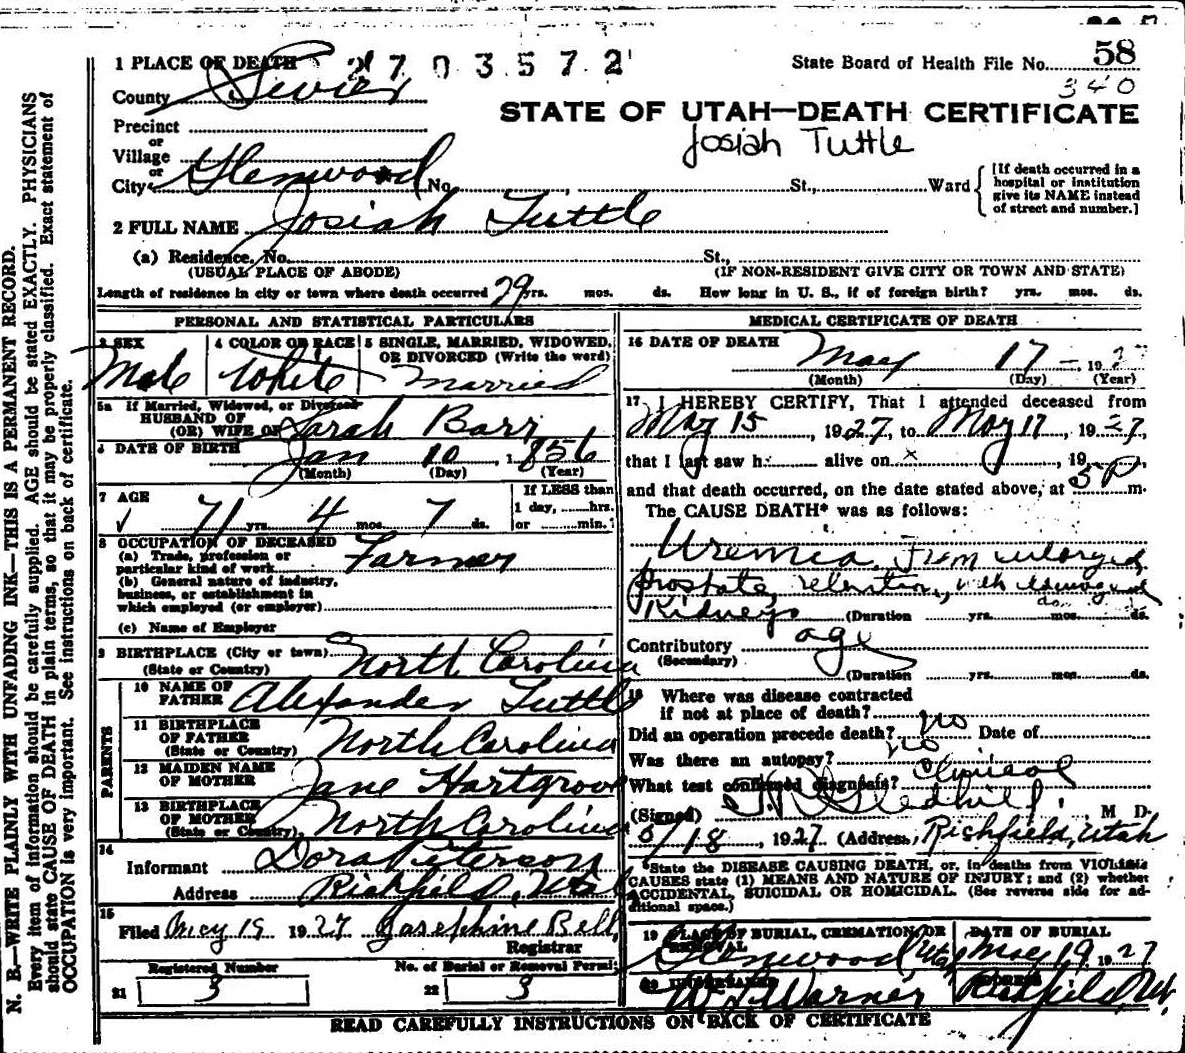 2703572
1 PLACE OF DEATH
State Board of Health File No. 58
340
County Sevier
STATE OF UTAH—DEATH CERTIFICATE
Josiah Tuttle
Precinct
or
Village
or
City Glenwood No. , St., Ward
[If death occurred in a hospital or institution give its NAME instead of street and number.]
2 FULL NAME Josiah Tuttle
(a) Residence, No. St.,
(USUAL PLACE OF ABODE) (IF NON-RESIDENT GIVE CITY OR TOWN AND STATE)
Length of residence in city or town where death occurred 29 yrs. mos. ds. How long in U. S., if of foreign birth? yrs. mos. ds.
PERSONAL AND STATISTICAL PARTICULARS
3 SEX Male
4 COLOR OR RACE White
5 SINGLE, MARRIED, WIDOWED, OR DIVORCED (Write the word) Married
5a If Married, Widowed, or Divorced
HUSBAND OF
(OR) WIFE OF Sarah Barr
6 DATE OF BIRTH Jan 10, 1856
(Month) (Day) (Year)
7 AGE 71 yrs. 4 mos. 7 ds.
If LESS than
1 day, hrs.
or min.?
8 OCCUPATION OF DECEASED
(a) Trade, profession or
particular kind of work Farmer
(b) General nature of industry,
business, or establishment in
which employed (or employer)
(c) Name of Employer
9 BIRTHPLACE (City or town)
(State or Country) North Carolina
PARENTS
10 NAME OF FATHER Alexander Tuttle
11 BIRTHPLACE OF FATHER (State or Country) North Carolina
12 MAIDEN NAME OF MOTHER Jane Hartgrove
13 BIRTHPLACE OF MOTHER (State or Country) North Carolina
14
Informant Dora Peterson
Address Richfield, Utah
15
Filed May 19 1927 Josephine Bell,
Registrar
Registered Number No. of Burial or Removal Permit
21 3 22 3
MEDICAL CERTIFICATE OF DEATH
16 DATE OF DEATH May 17 — 1927
(Month) (Day) (Year)
17 I HEREBY CERTIFY, That I attended deceased from
May 15, 1927, to May 17, 1927,
that I last saw h alive on x , 19
and that death occurred, on the date stated above, at 5 P m.
The CAUSE DEATH* was as follows:
Uremia, From enlarged
prostate, retention, with
Kidneys (Duration yrs. mos. ds.
Contributory age
(Secondary)
(Duration yrs. mos. ds.
18 Where was disease contracted
if not at place of death?
Did an operation precede death? no Date of
Was there an autopsy? no
What test confirmed diagnosis? Clinical
(Signed) Gledhill, M D.
5/18, 1927 (Address, Richfield, Utah
*State the DISEASE CAUSING DEATH, or, in deaths from VIOLENT
CAUSES state (1) MEANS AND NATURE OF INJURY; and (2) whether
ACCIDENTAL, SUICIDAL OR HOMICIDAL. (See reverse side for ad-
ditional space.)
19 PLACE OF BURIAL, CREMATION OR REMOVAL Glenwood Utah
DATE OF BURIAL May 19, 1927
20 W. Warner
Richfield, Ut.
READ CAREFULLY INSTRUCTIONS ON BACK OF CERTIFICATE
N. B.—WRITE PLAINLY WITH UNFADING INK—THIS IS A PERMANENT RECORD.
Every item of information should be carefully supplied. AGE should be stated EXACTLY. PHYSICIANS
should state CAUSE OF DEATH in plain terms, so that it may be properly classified. Exact statement of
OCCUPATION is very important. See instructions on back of certificate.